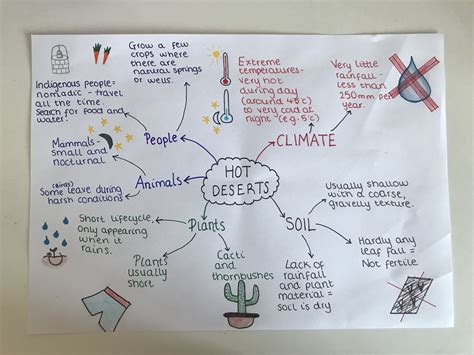 Grow a few
crops where
there are
natural springs
or wells.
Indigenous people=
nomadic - travel
all the time.
Search for food and
water.
Mammals-
small and
nocturnal
People
Animals
Some (Birds) leave during
harsh conditions
Short lifecycle,
only appearing
when it
rains.
Plants
Plants
usually
short
Cacti
and
thornbushes
HOT
DESERTS
Extreme
temperatures-
very hot
during day
(around 45°c)
to very cold at
night (e.g. 5°c)
Very little
rainfall-
less than
250mm per
year.
CLIMATE
SOIL
Usually shallow
with a coarse,
gravelly texture.
Hardly any
leaf fall =
Not fertile
Lack of
rainfall
and plant
material =
soil is dry